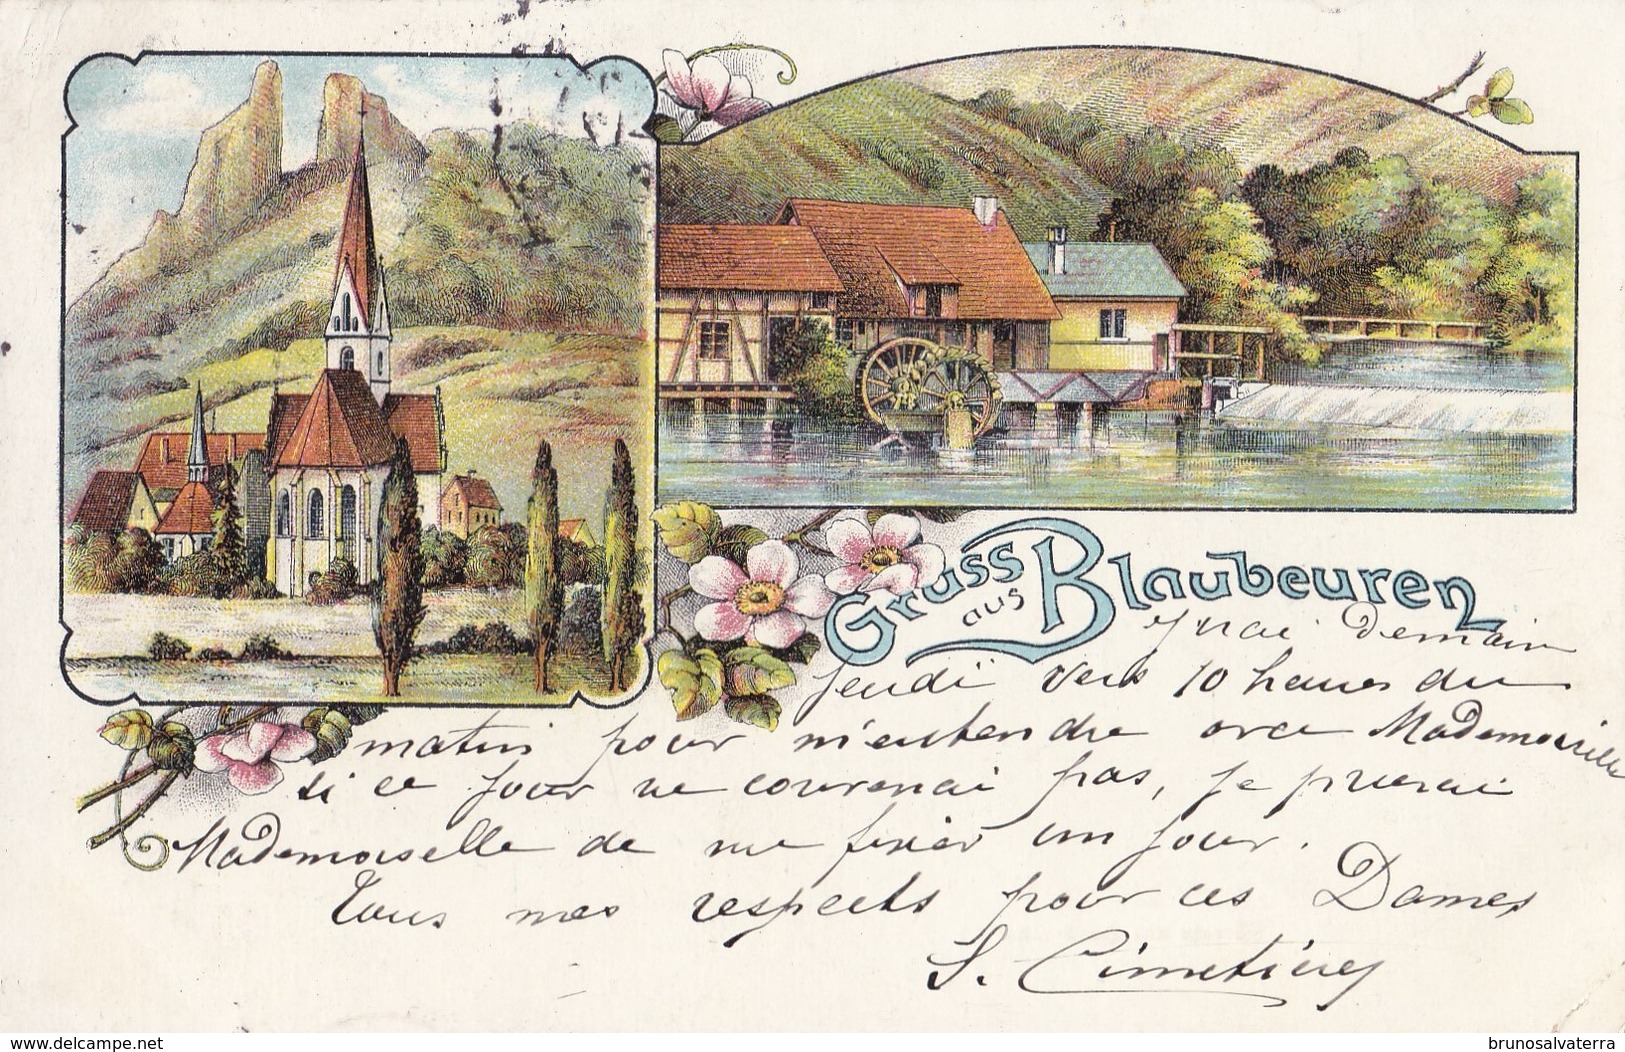 Gruss aus Blaubeuren
J'irai demain
Jeudi vers 10 heures du
matin pour m'entendre avec Mademoiselle
si ce jour ne convenai pas, je prierai
Mademoiselle de me fixer un jour.
Tous mes respects pour ces Dames
S.
www.delcampe.net
brunosalvaterra